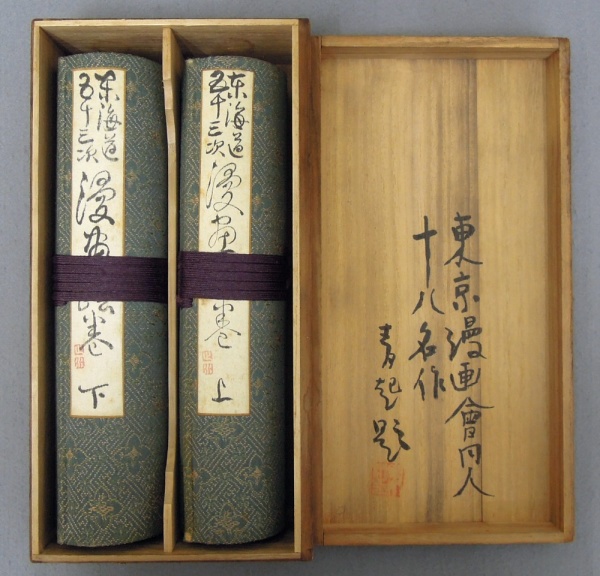 東海道
五十三次
漫画絵巻
上
東海道
五十三次
漫画絵巻
下
東京漫画會同人
十八名作
青起題